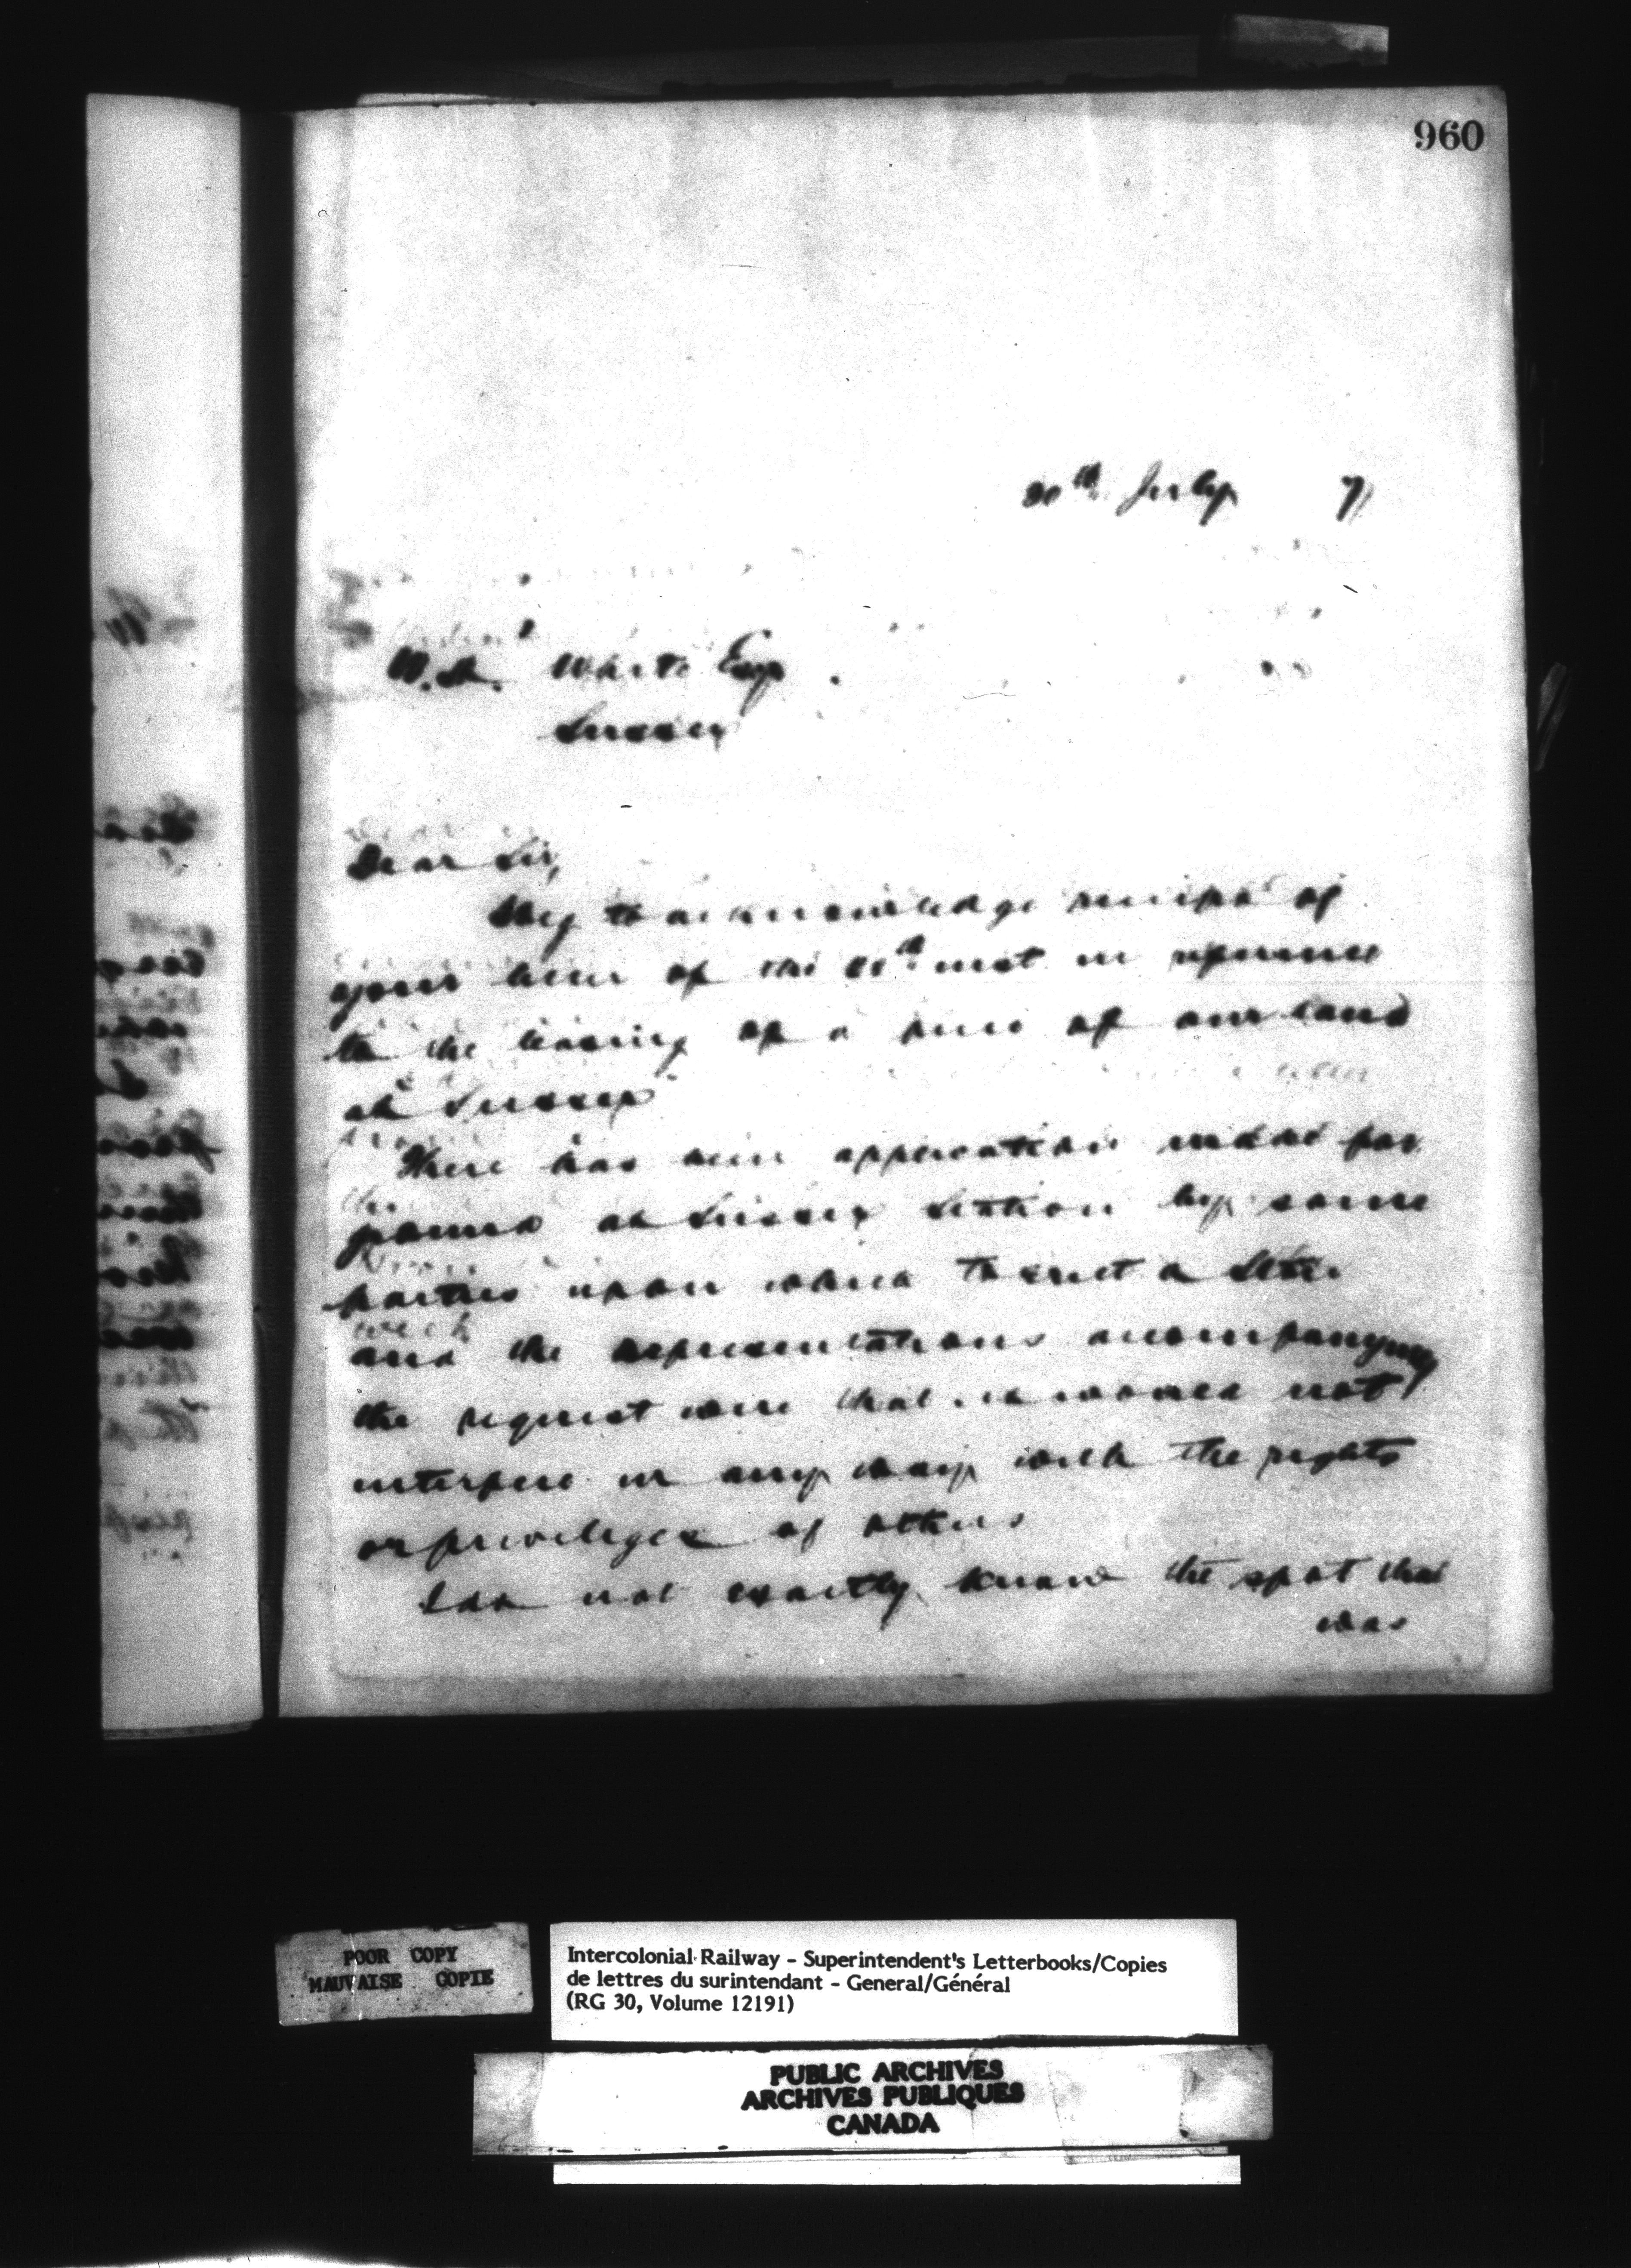 960
30th July 7
W. H. White Esq
Sussex
Dear Sir,
Beg to acknowledge receipt of
your letter of the inst in reference
to the leasing of a piece of our land
at Sussex
There has been application made for
ground at Sussex Station by some
parties upon which to erect a
and the representations accompanying
the request were that it would not
interfere in any way with the rights
or privileges of others
I do not exactly know the spot that
was
POOR COPY
MAUVAISE COPIE
Intercolonial Railway - Superintendent's Letterbooks/Copies
de lettres du surintendant - General/Général
(RG 30, Volume 12191)
PUBLIC ARCHIVES
ARCHIVES PUBLIQUES
CANADA